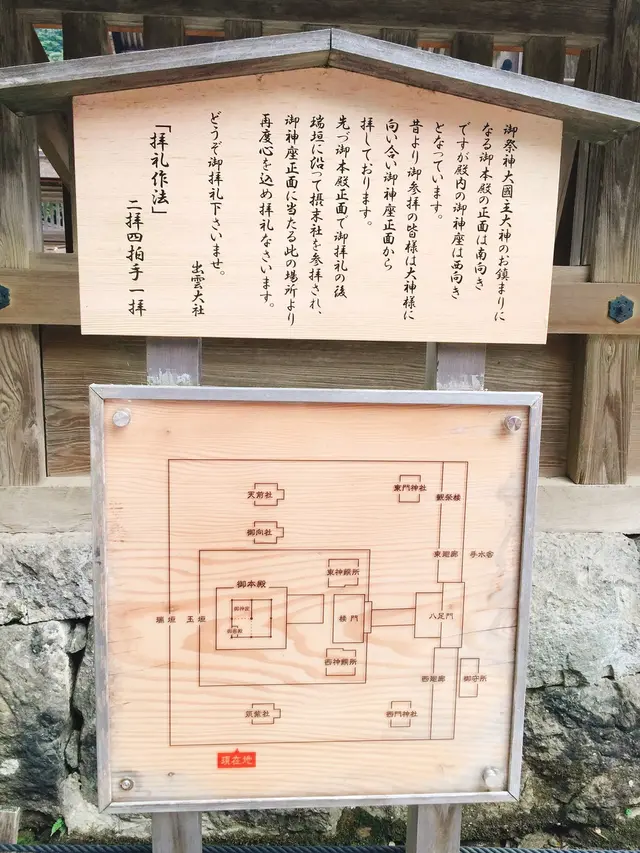 御祭神大國主大神のお鎮まりに
なる御本殿の正面は南向き
ですが殿内の御神座は西向き
となっています。
昔より御参拝の皆様は大神様に
向い合い御神座正面から
拝しております。
先づ御本殿正面で御拝礼の後
瑞垣に沿って摂末社を参拝され、
御神座正面に当たる此の場所より
再度心を込め拝礼なさいます。
どうぞ御拝礼下さいませ。
出雲大社
「拝礼作法」
二拝四拍手一拝
天前社
東門神社
観祭楼
御向社
東廻廊
手水舎
東神饌所
御本殿
御神座
御客座
瑞垣
玉垣
楼門
八足門
西神饌所
西廻廊
御守所
筑紫社
西門神社
現在地